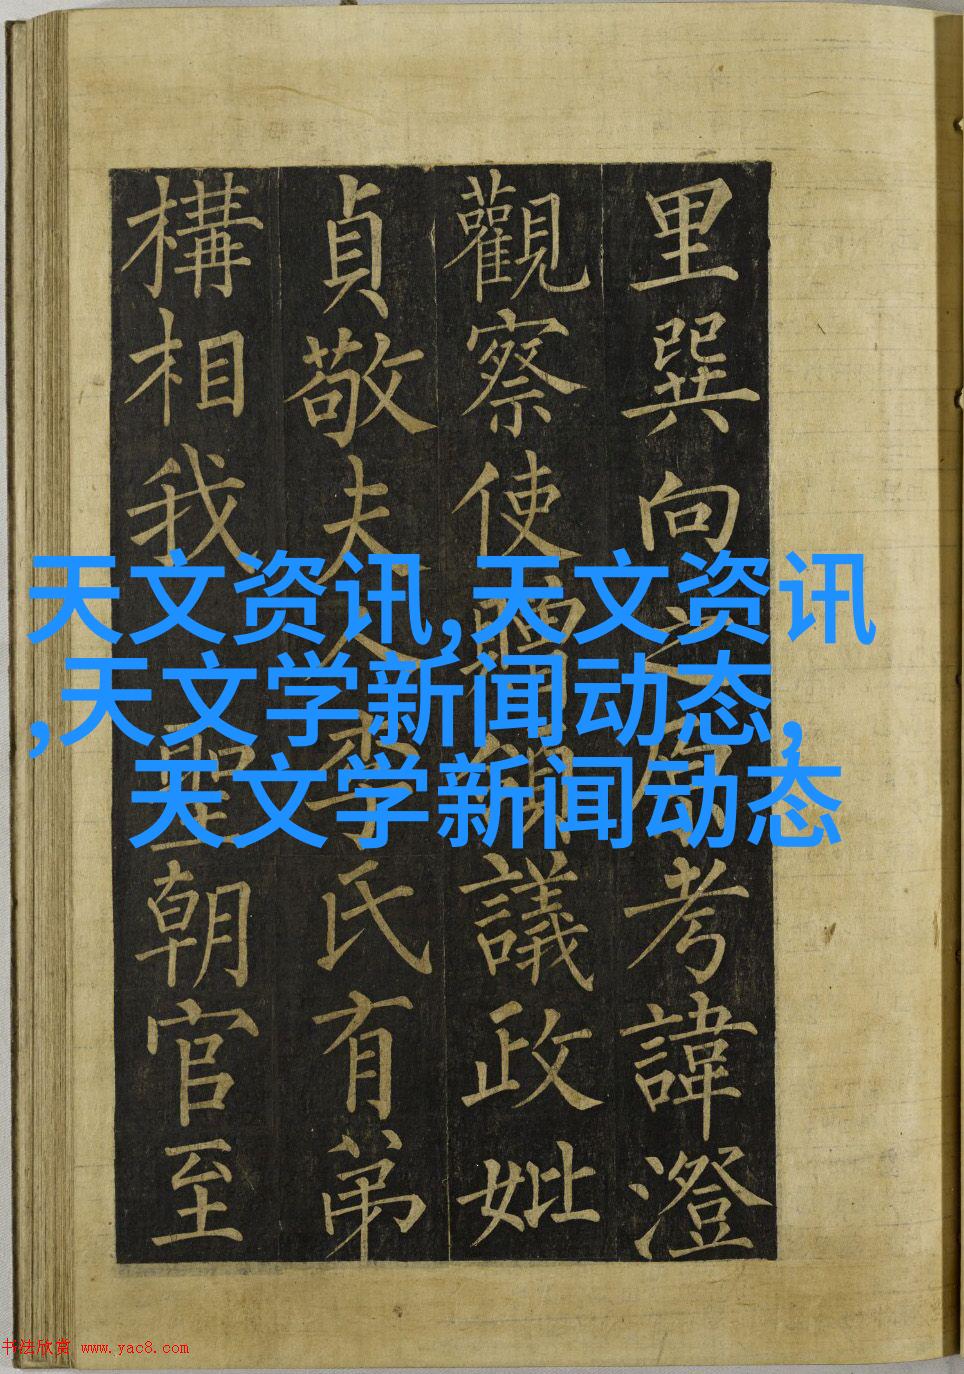 里巽向之原考諱澄
觀察使贈領議政妣
貞敬夫人李氏有弟
構相我聖朝官至
天文资讯,天文资讯
,天文学新闻动态,
天文学新闻动态
书法欣赏 www.yac8.com